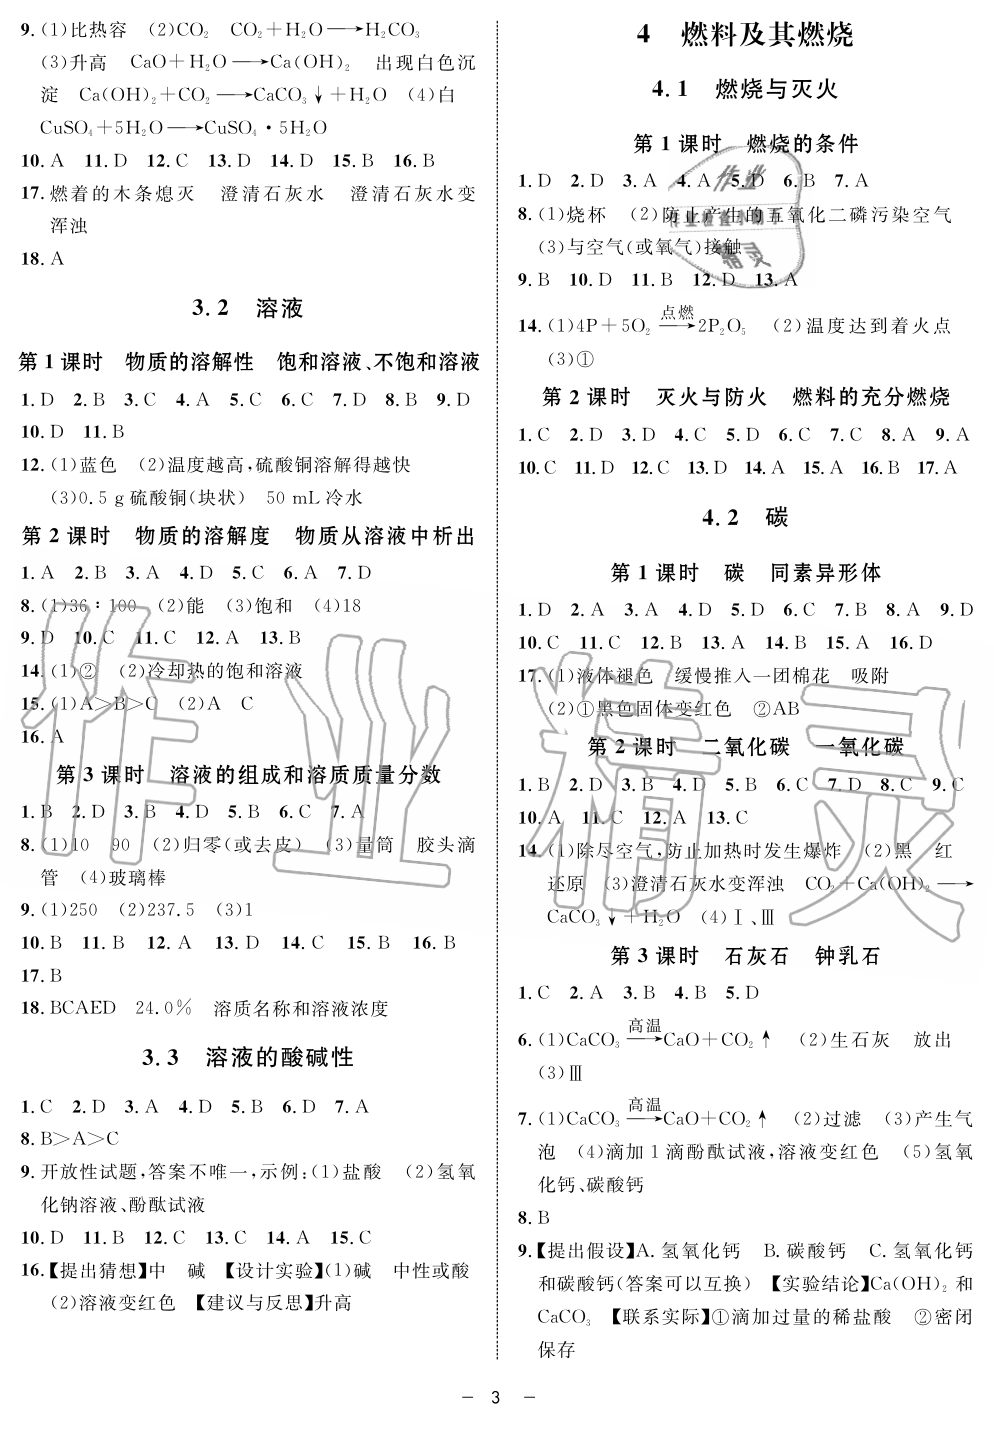 9.(1)比热容　(2)CO₂　CO₂+H₂O⟶H₂CO₃
(3)升高　CaO+H₂O⟶Ca(OH)₂　出现白色沉
淀　Ca(OH)₂+CO₂⟶CaCO₃↓+H₂O　(4)白
CuSO₄+5H₂O⟶CuSO₄·5H₂O
10.A　11.D　12.C　13.D　14.D　15.B　16.B
17.燃着的木条熄灭　澄清石灰水　澄清石灰水变
浑浊
18.A
3.2　溶液
第1课时　物质的溶解性　饱和溶液、不饱和溶液
1.D　2.B　3.C　4.A　5.C　6.C　7.D　8.B　9.D
10.D　11.B
12.(1)蓝色　(2)温度越高,硫酸铜溶解得越快
(3)0.5 g硫酸铜(块状)　50 mL冷水
第2课时　物质的溶解度　物质从溶液中析出
1.A　2.B　3.A　4.D　5.C　6.A　7.D
8.(1)36∶100　(2)能　(3)饱和　(4)18
9.D　10.C　11.C　12.A　13.B
14.(1)②　(2)冷却热的饱和溶液
15.(1)A>B>C　(2)A　C
16.A
第3课时　溶液的组成和溶质质量分数
1.B　2.D　3.B　4.D　5.B　6.C　7.A
8.(1)10　90　(2)归零(或去皮)　(3)量筒　胶头滴
管　(4)玻璃棒
9.(1)250　(2)237.5　(3)1
10.B　11.B　12.A　13.D　14.C　15.B　16.B
17.B
18.BCAED　24.0%　溶质名称和溶液浓度
3.3　溶液的酸碱性
1.C　2.D　3.A　4.D　5.B　6.D　7.A
8.B>A>C
9.开放性试题,答案不唯一,示例:(1)盐酸　(2)氢氧
化钠溶液、酚酞试液
10.D　11.B　12.C　13.C　14.A　15.C
16.【提出猜想】中　碱　【设计实验】(1)碱　中性或酸
(2)溶液变红色　【建议与反思】升高
4　燃料及其燃烧
4.1　燃烧与灭火
第1课时　燃烧的条件
1.D　2.D　3.A　4.A　5.D　6.B　7.A
8.(1)烧杯　(2)防止产生的五氧化二磷污染空气
(3)与空气(或氧气)接触
9.B　10.D　11.B　12.D　13.A
点燃
14.(1)4P+5O₂⟶2P₂O₅　(2)温度达到着火点
(3)①
第2课时　灭火与防火　燃料的充分燃烧
1.C　2.D　3.D　4.C　5.D　6.C　7.C　8.A　9.A
10.C　11.D　12.C　13.D　14.A　15.A　16.B　17.A
4.2　碳
第1课时　碳　同素异形体
1.D　2.A　3.A　4.D　5.D　6.C　7.B　8.A　9.D
10.C　11.C　12.B　13.A　14.B　15.A　16.D
17.(1)液体褪色　缓慢推入一团棉花　吸附
(2)①黑色固体变红色　②AB
第2课时　二氧化碳　一氧化碳
1.B　2.D　3.B　4.D　5.B　6.C　7.D　8.C　9.C
10.A　11.C　12.A　13.C
14.(1)除尽空气,防止加热时发生爆炸　(2)黑　红
还原　(3)澄清石灰水变浑浊　CO₂+Ca(OH)₂⟶
CaCO₃↓+H₂O　(4)Ⅰ、Ⅲ
第3课时　石灰石　钟乳石
1.C　2.A　3.B　4.B　5.D
高温
6.(1)CaCO₃⟶CaO+CO₂↑　(2)生石灰　放出
(3)Ⅲ
高温
7.(1)CaCO₃⟶CaO+CO₂↑　(2)过滤　(3)产生气
泡　(4)滴加1滴酚酞试液,溶液变红色　(5)氢氧
化钙、碳酸钙
8.B
9.【提出假设】A.氢氧化钙　B.碳酸钙　C.氢氧化钙
和碳酸钙(答案可以互换)　【实验结论】Ca(OH)₂和
CaCO₃　【联系实际】①滴加过量的稀盐酸　②密闭
保存
－ 3 －
作业精灵